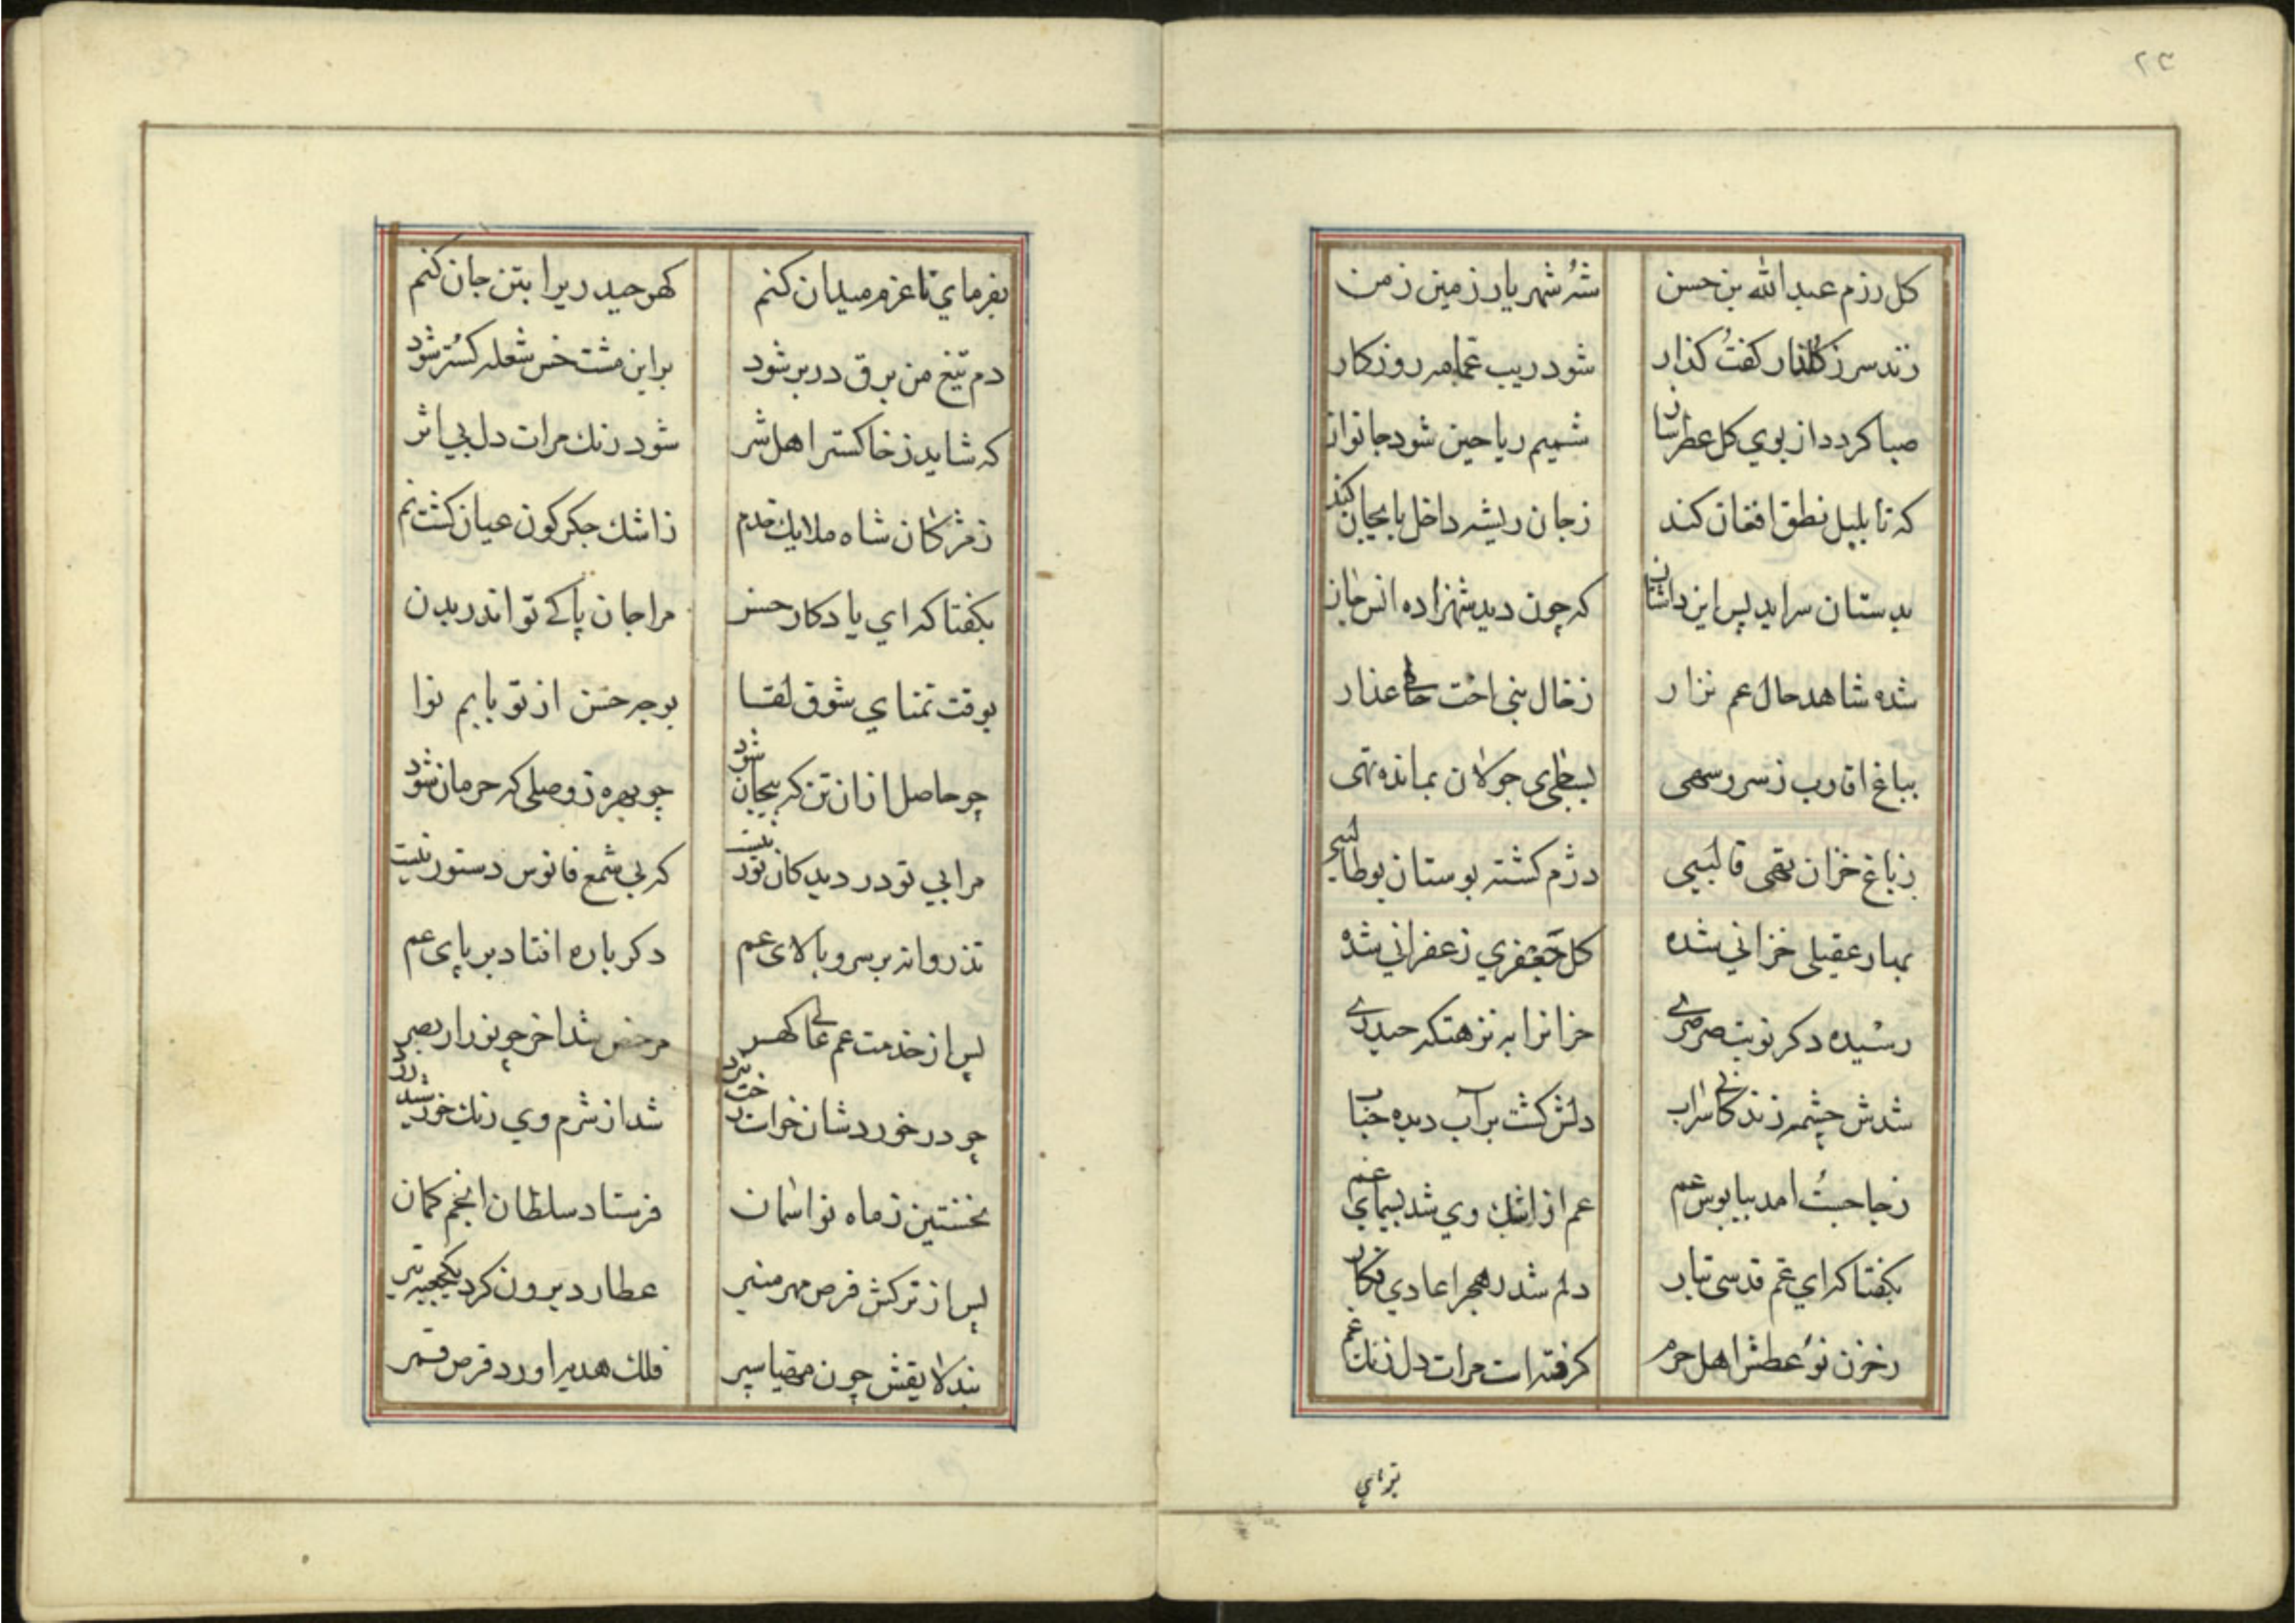 ٢٣
کل رزم عبدالله بن حسن شه شهریار زمین زمن
زند سر ز کلنار کفت کذار شود زیب عمامه روزکار
صبا کردد از بوي کل عطرسان شمیم ریاحین شود جانوان
که تا بلبل نطق افغان کند ز جان ریشه داخل بابجان کند
بدستان سراید پس این داستان که چون دید شهزاده انس جان
شده شاهد حال عم نزار ز خال بنی اخت عذار
بباغ اقارب ز سرو سهی جولان بمانده تهی
ز باغ خزان قالبیی دژم کشته بوستان بوطالبی
بهار عقیلی خزاني شده کل جعفري زعفراني شده
رسیده دکر نوبت صرصری خزانرا به نزهتکه حیدری
شدش چشمه زندکانی سراب دلش کشت بر آب دیده حباب
ز جا جست امد بپابوس عم عم از اشک وي شد بسیمای غم
بکفتا که اي عم قدسی تبار دلم شد ز هجر اعادي فکار
ز خون نو عطش اهل حرم کرفته است مرات دل زنك غم
بفرماي
بفرماي تا عزم میدان کنم کهر حیدریرا بتن جان کنم
دم تیغ من برق در بر شود بر این مشت خس شعله کستر شود
که شاید ز خاکستر اهل شر شود زنك مرات دل بي اثر
ز مژکان شاه ملایك خدم ز اشك جکرکون عیان کشت نم
بکفتا که اي یادکار حسن مرا جان پاکی تو اندر بدن
بوقت تمناي شوق لقا بوجه حسن از تو یابم نوا
چو حاصل از ان تن که بیجان شود چو بهره ز وصلی که حرمان شود
مرا بي تو در دیدکان نور نیست که بي شمع فانوس دستور نیست
تذروانه بر سرو بالای عم دکرباره افتاد بر پای عم
پس از خدمت عم عالی کهر مرخص شد اخر چو نور از بصر
چو در خورد شان خواست رخت نبرد شد از شرم وي رنك خورشید زرد
نخستین ز ماه نو اسمان فرستاد سلطان انجم کمان
پس از ترکش قرص مهر منیر عطارد برون کرد یکجعبه تیر
بند لایقش چون مهیا سپر فلك هدیه اورد قرص قمر